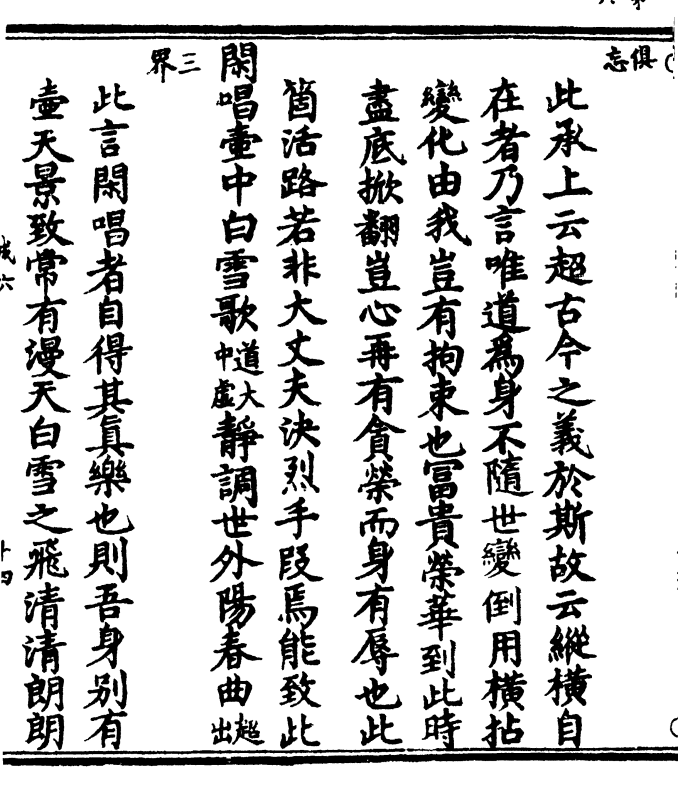 俱忘
此承上云超古今之義於斯故云縱橫自
在者乃言唯道爲身不隨世變倒用橫拈
變化由我豈有拘束也冨貴榮華到此時
盡底掀翻豈心再有貪榮而身有辱也此
箇活路若非大丈夫決烈手段焉能致此
閑唱壷中白雪歌道大中虛靜調世外陽春曲超出
三界
此言閑唱者自得其眞樂也則吾身别有
壷天景致常有漫天白雪之飛清清朗朗